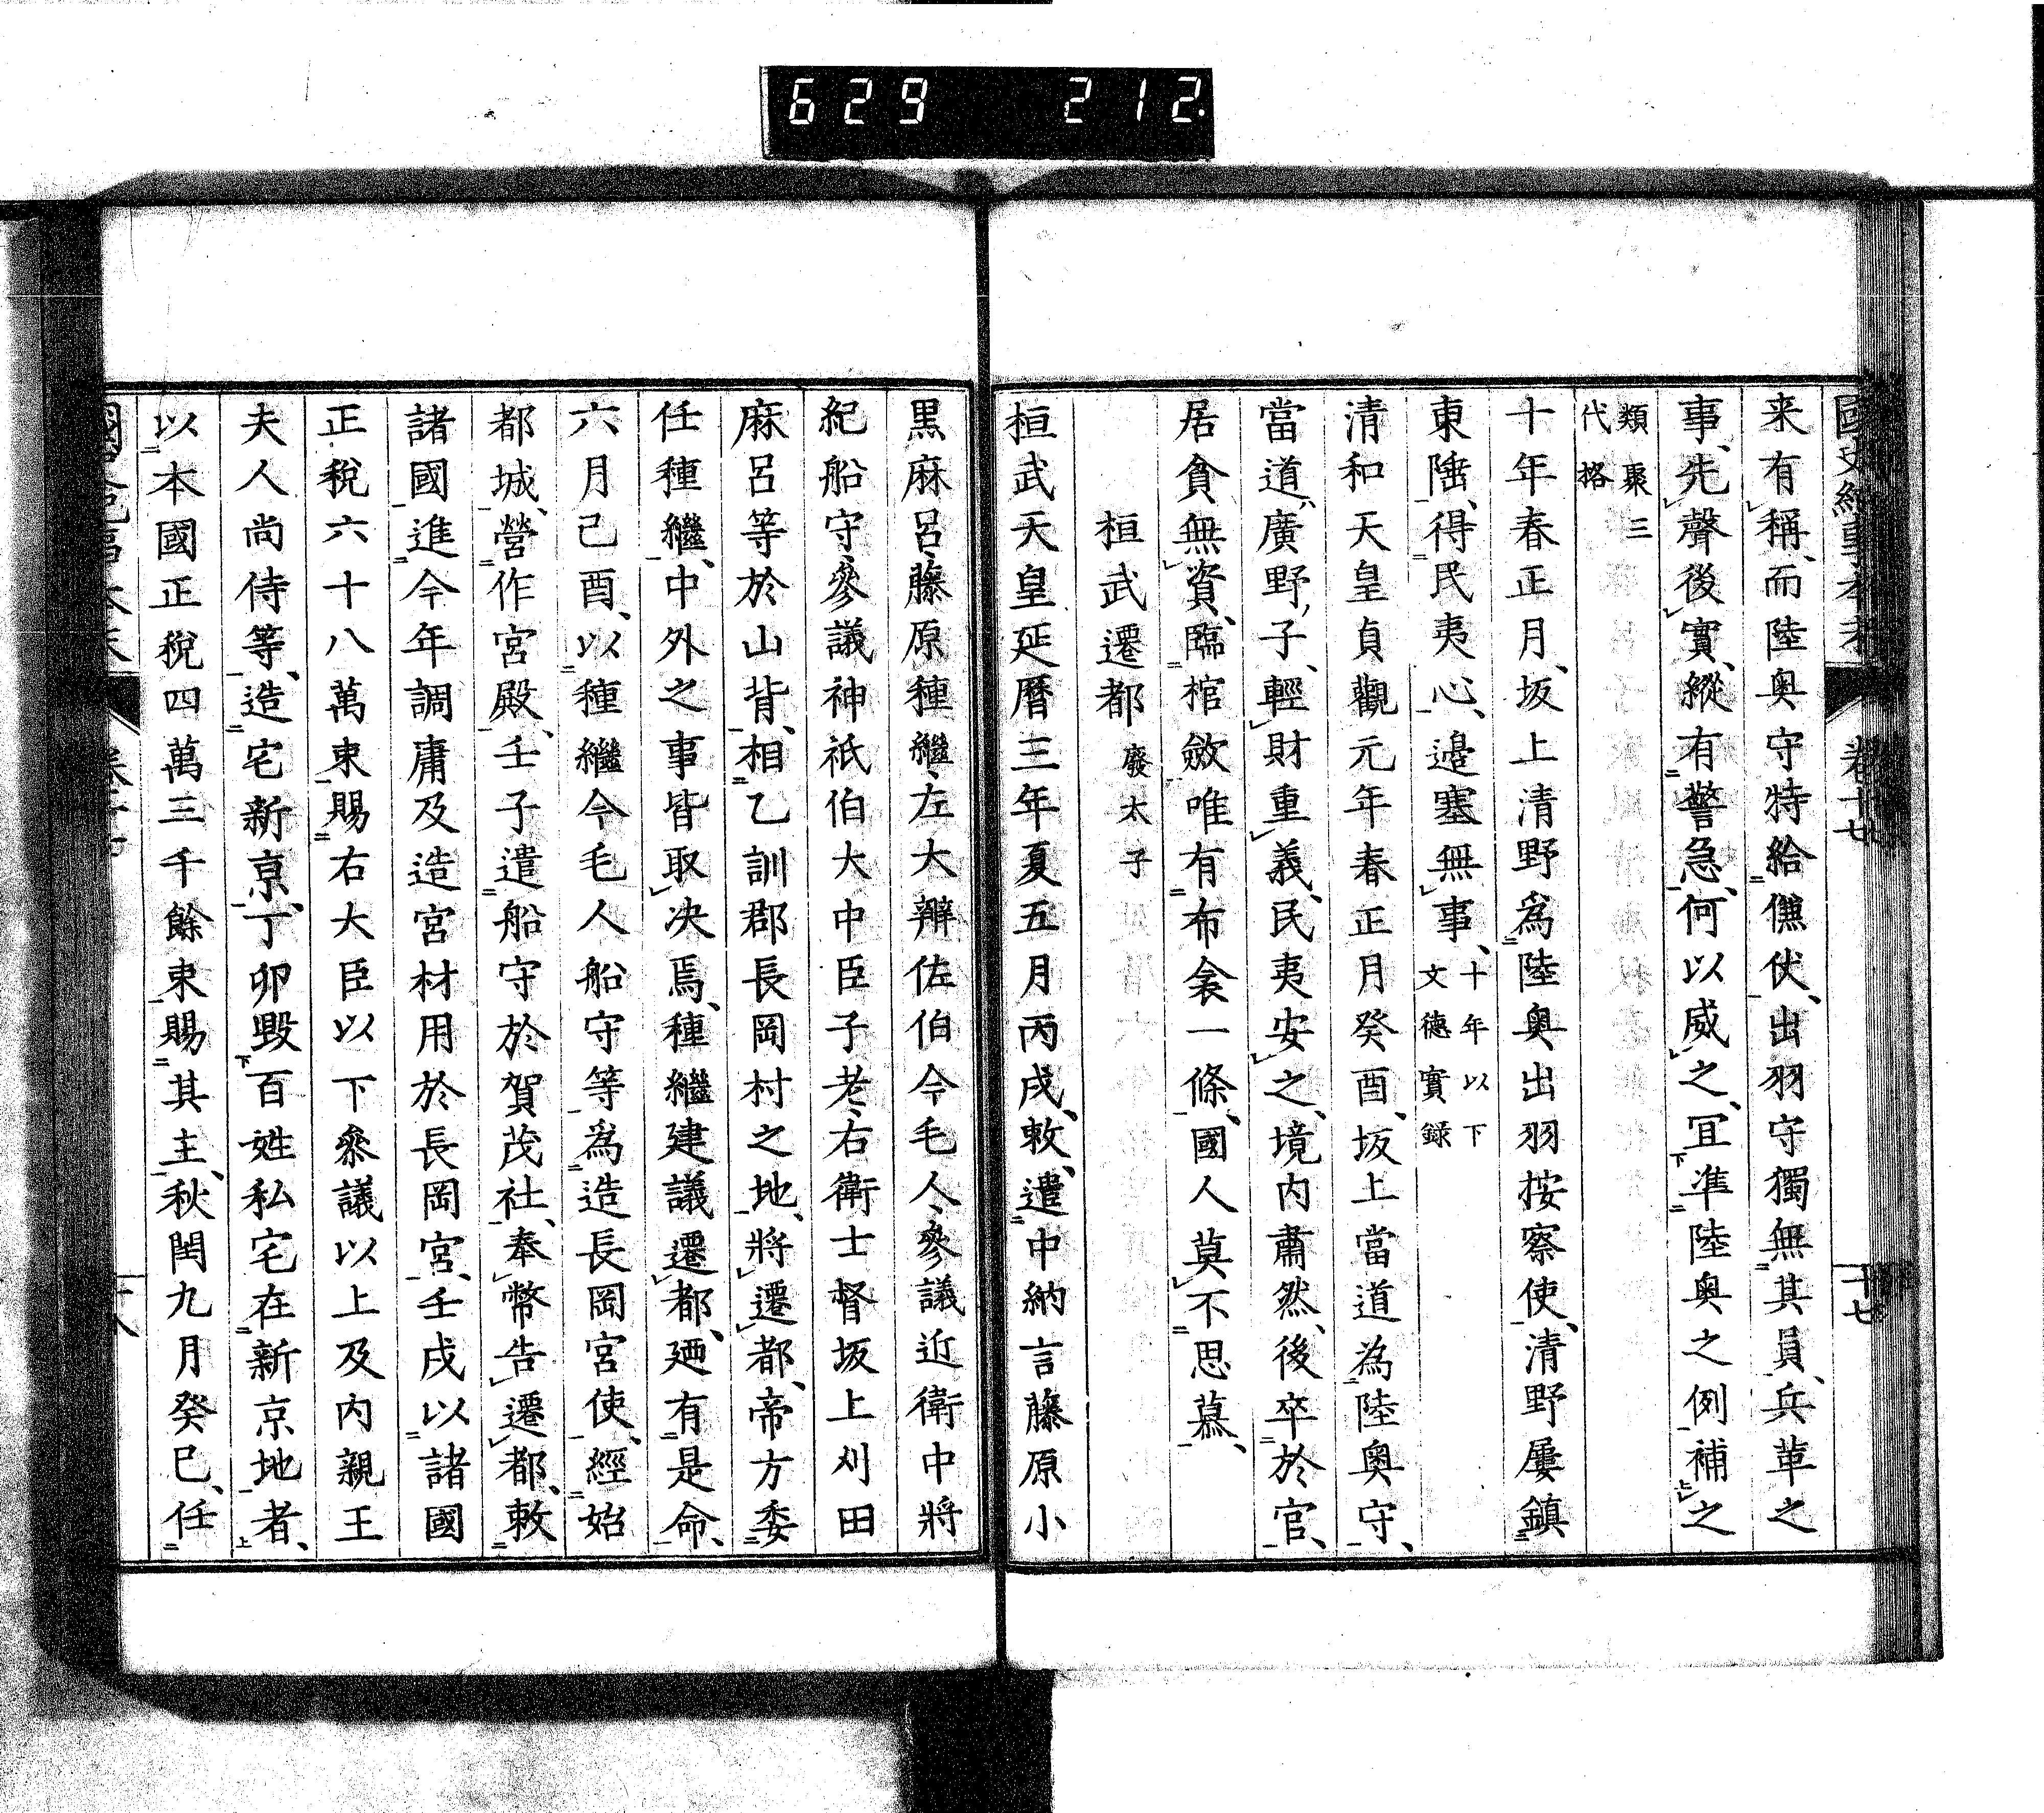 629 212
國史紀事本末 卷十七 十七
来有稱、而陸奥守特給儻伏、出羽守獨無其員、兵革之
事、先聲後實、縱有警急、何以威之、冝準陸奥之例補之
類聚三
代格
十年春正月、坂上清野爲陸奥出羽按察使、清野屢鎮
東陲、得民夷心、邉塞無事、
十年以下
文德實録
清和天皇貞觀元年春正月癸酉、坂上當道為陸奥守、
當道、廣野子、輕財重義、民夷安之、境内肅然、後卒於官、
居貪無資、臨棺斂唯有布衾一條、國人莫不思慕、
桓武遷都 廢太子
桓武天皇延暦三年夏五月丙戌、敕、遣中納言藤原小
黒麻呂、藤原種繼、左大辨佐伯今毛人、參議近衛中將
紀船守、參議神祇伯大中臣子老、右衛士督坂上刈田
麻呂等於山背、相乙訓郡長岡村之地、將遷都、帝方委
任種繼、中外之事皆取决焉、種繼建議遷都、廼有是命、
六月己酉、以種繼今毛人船守等為造長岡宮使、經始
都城、營作宮殿、壬子遣船守於賀茂社、奉幣告遷都、敕
諸國進今年調庸及造宮材用於長岡宮、壬戌以諸國
正税六十八萬束賜右大臣以下叅議以上及内親王
夫人尚侍等、造宅新亰、丁卯毀百姓私宅在新京地者、
以本國正税四萬三千餘束賜其主、秋閏九月癸巳、任